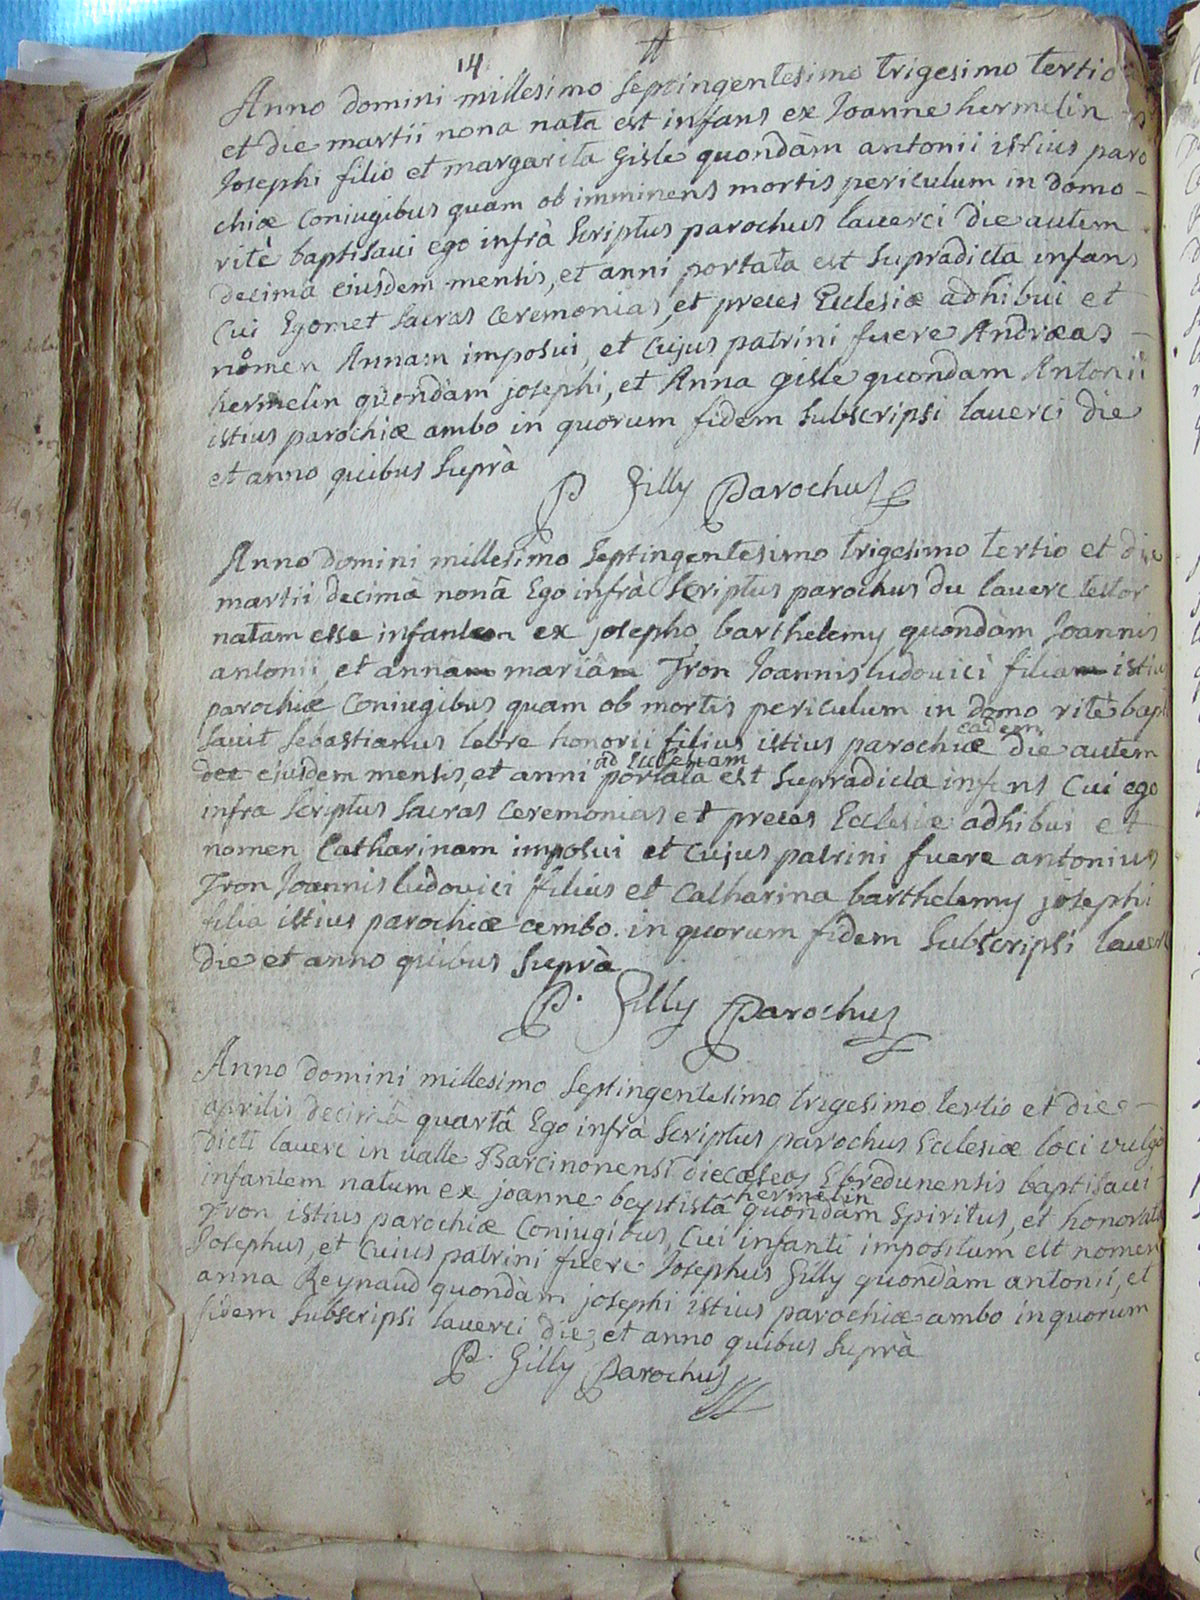 14
Anno domini millesimo septingentesimo trigesimo tertio
et die martii nona nata est infans ex Joanne hermelin
Josephi filio et margarita Gisle quondàm antonii istius paro
chiæ Coniugibus quam ob imminens mortis periculum in domo –
ritè baptisaui ego infrà Scriptus parochus lauerci die autem
decima eiusdem mensis, et anni portata est supradicta infans
Cui Egomet sacras Ceremonias, et preces Ecclesiæ adhibui et
nomen Annam imposui, et Cujus patrini fuere Andræas –
hermelin quondàm josephi, et Anna gisle quondam Antonii
istius parochiæ ambo in quorum fidem subscripsi lauerci die
et anno quibus suprà
P Gilly Parochus
Anno domini millesimo septingentesimo trigesimo tertio et die
martii decimâ nonâ Ego infrà Scriptus parochus du lauerc testor
natam esse infantem ex josepho barthelemy quondàm Joannis
antonii, et annam mariâm Tron Joannis ludouici filiam istius
parochiæ Coniugibus quam ob mortis periculum in domo ritè bapti
sauit sebastianus lebre honorii filius istius parochiæ die autem
eadem
ejusdem mensis, et anni portata est supradicta infans Cui ego
ad Ecclesiam
infra Scriptus sacras Ceremonias et preces Ecclesiæ adhibui et
nomen Catharinam imposui et Cujus patrini fuere antonius
Tron Joannis ludouici filius et Catharina barthelemy josephi
filia istius parochiæ ambo. in quorum fidem subscripsi lauerci
die et anno quibus suprà
P. Gilly Parochus
Anno domini millesimo septingentesimo trigesimo tertio et die –
aprilis decimâ quartâ Ego infrà Scriptus parochus Ecclesiæ loci vulgò
dicti lauerc in ualle Barcinonensi diecæseos Ebredunensis baptisaui
infantem natum ex joanne baptistâ quondàm Spiritus, et honorata
hermelin
Tron istius parochiæ Coniugibus, Cui infanti impositum est nomen
Josephus, et Cuius patrini fuere Josephus Gilly quondàm antonii, et
anna Reynaud quondàm josephi istius parochiæ ambo in quorum
fidem subscripsi lauerci die, et anno quibus suprà
P. Gilly Parochus